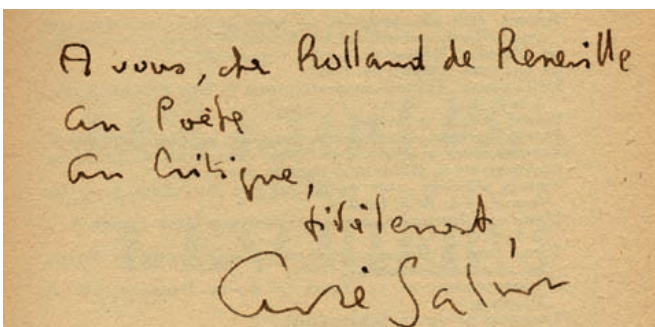 A vous, cher Rolland de Reneville
au Poète
au Critique,
fidèlement,
André Salmon